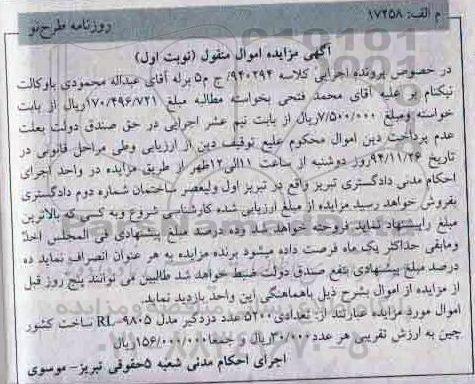 م الف: ۱۷۲۵۸
روزنامه طرح نو
آگهی مزایده اموال منقول (نوبت اول)
در خصوص پرونده اجرایی کلاسه ۹۴۰۲۹۴/ ج م۵ برله آقای عبداله محمودی باوکالت
نیکنام و علیه آقای محمد فتحی بخواسته مطالبه مبلغ ۱۷۰/۴۹۶/۷۲۱ریال از بابت
خواسته ومبلغ ۷/۵۰۰/۰۰۰ریال از بابت نیم عشر اجرایی در حق صندق دولت بعلت
عدم پرداخت دین اموال محکوم علیع توقیف دین از ارزیابی وطی مراحل قانونی در
تاریخ ۹۴/۱۱/۲۶روز دوشنبه از ساعت ۱۱الی۱۲ظهر از طریق مزایده در واحد اجرای
احکام مدنی دادگستری تبریز واقع در تبریز اول ولیعصر ساختمان شماره دوم دادگستری
بفروش خواهد رسید مزایده از مبلغ ارزیابی شده کارشناسی شروع وبه کسی که بالاترین
مبلغ راپیشنهاد نماید فروخته خواهد شد وده درصد مبلغ پیشنهادی فی المجلس اخذ
ومابقی حداکثر یک ماه فرصت داده میشود برنده مزایده به هر عنوان انصراف نماید ده
درصد مبلغ پیشنهادی بنفع صندق دولت ضبط خواهد شد طالبین می توانند پنج روز قبل
از مزایده از اموال بشرح ذیل باهماهنگی این واحد بازدید نماید.
اموال مورد مزایده عبارتند از: تعدادی۵۲۰۰ عدد دزدگیر مدل RL-۹۸۰۵ ساخت کشور
چین به ارزش تقریبی هر عدد۳۰/۰۰۰ریال و جمعا۱۵۶/۰۰۰/۰۰۰ریال
اجرای احکام مدنی شعبه ۵حقوقی تبریز- موسوی